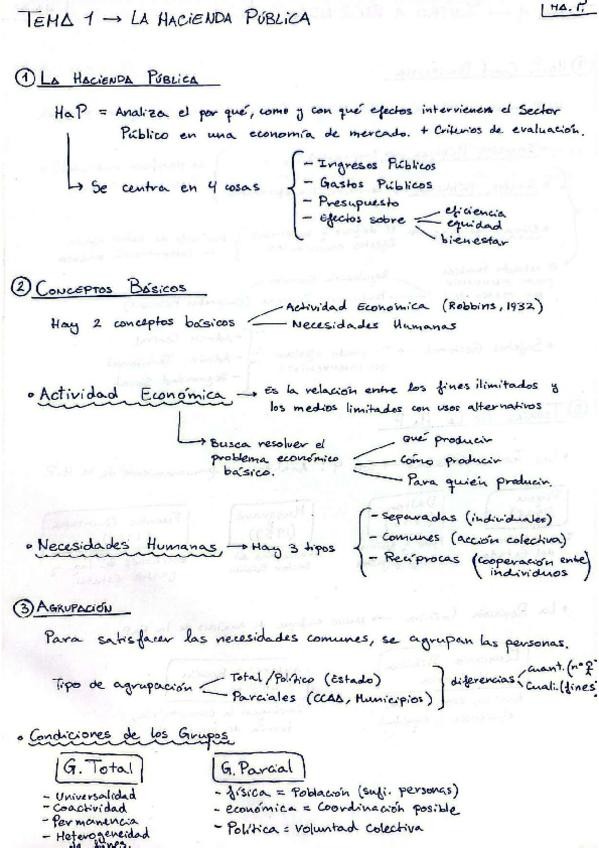 TEMA 1 → LA HACIENDA PÚBLICA
HA.P.
① LA HACIENDA PÚBLICA
HaP = Analiza el por qué, como y con qué efectos intervienen el Sector
Público en una economía de mercado. + Criterios de evaluación.
↳ Se centra en 4 cosas
- Ingresos Públicos
- Gastos Públicos
- Presupuesto
- Efectos sobre
eficiencia
equidad
bienestar
② CONCEPTOS BÁSICOS
Hay 2 conceptos básicos
Actividad Económica (Robbins, 1932)
Necesidades Humanas
• Actividad Económica → Es la relación entre los fines ilimitados y
los medios limitados con usos alternativos
↳ Busca resolver el
problema económico
básico.
qué producir
cómo producir
Para quién producir.
• Necesidades Humanas → Hay 3 tipos
- separadas (individuales)
- Comunes (acción colectiva)
- Recíprocas (cooperación ente)
individuos
③ AGRUPACIÓN
Para satisfacer las necesidades comunes, se agrupan las personas.
Tipo de agrupación
Total/Político (Estado)
Parciales (CCAA, Municipios)
diferencias
cuant. (nº
Cuali. (fines)
• Condiciones de los Grupos
G. Total
- Universalidad
- Coactividad
- Permanencia
- Heterogeneidad
de fines.
G. Parcial
- física = Población (sufi. personas)
- económica = Coordinación posible
- Política = Voluntad colectiva